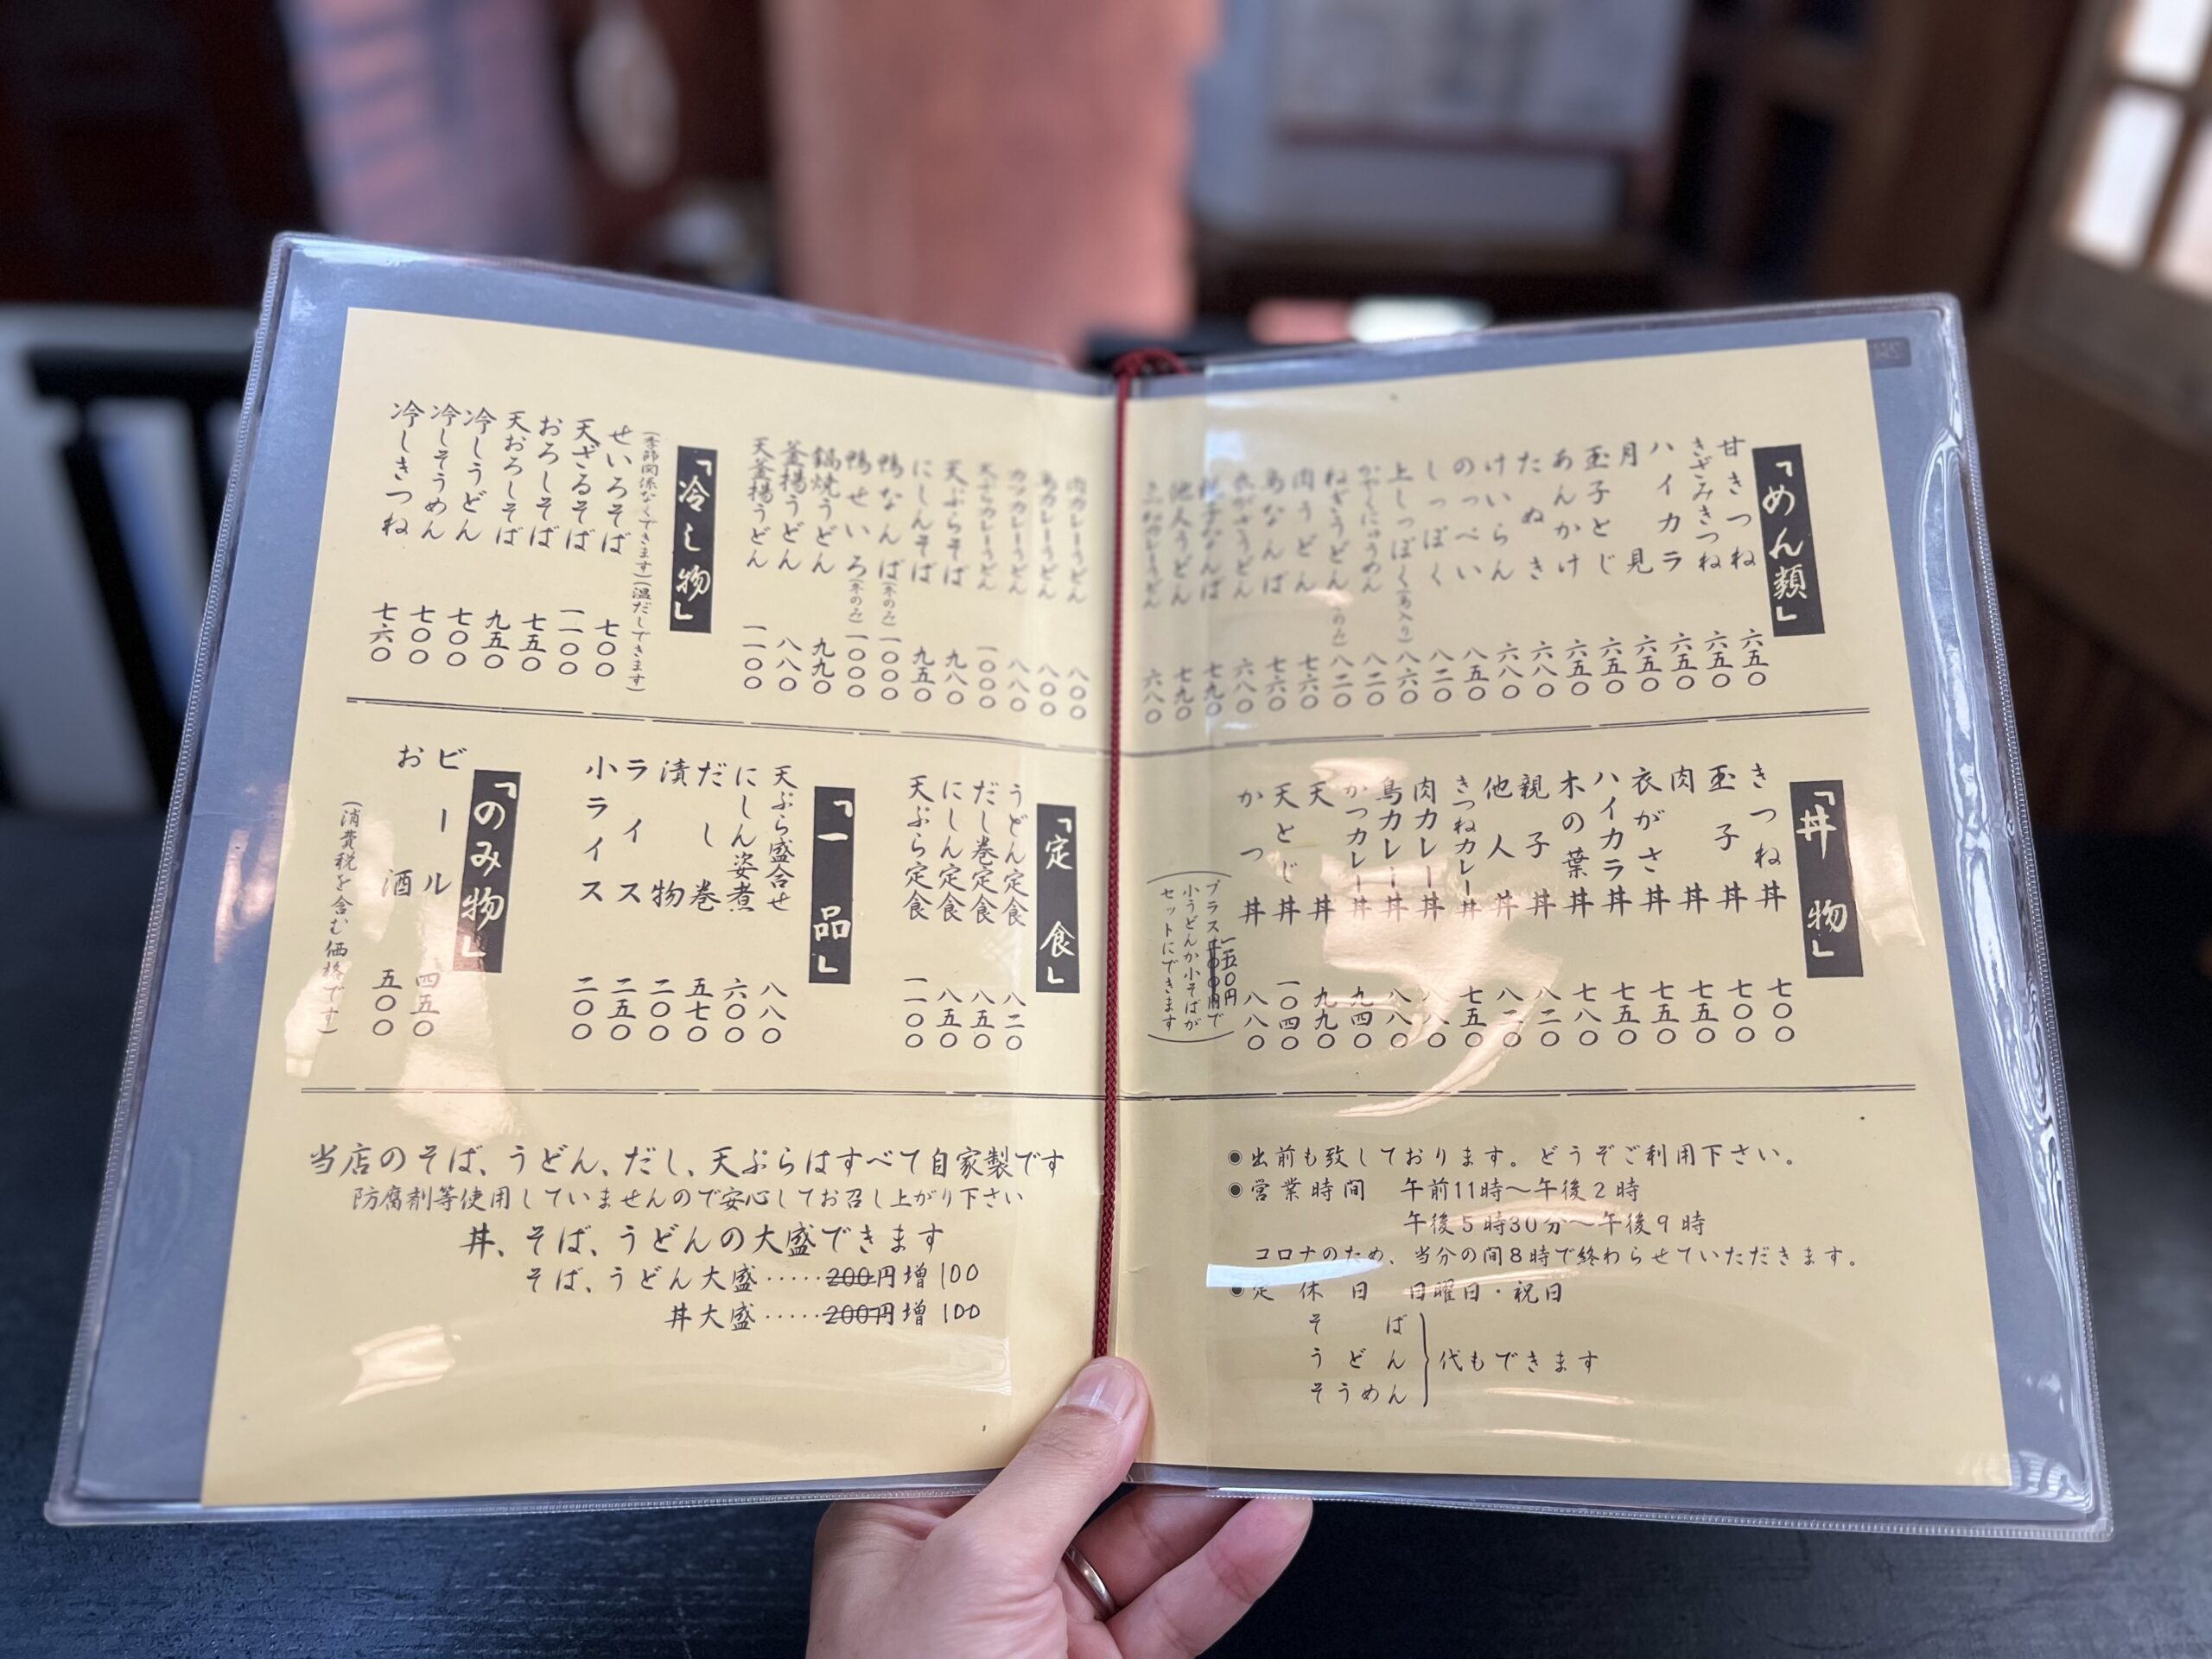 「めん類」
甘きつね 六五〇
きざみきつね 六五〇
ハイカラ 六五〇
月見 六五〇
玉子とじ 六五〇
あんかけ 六五〇
たぬき 六八〇
けいらん 六八〇
のっぺい 八五〇
しっぽく 八二〇
上しっぽく(鳥入り) 八六〇
かやくにゅうめん 八二〇
ねぎうどん 八二〇
肉うどん 七六〇
鳥なんば 七六〇
衣がさうどん 六八〇
親子なんば 七九〇
他人うどん 七九〇
カレーうどん 六八〇
肉カレーうどん 八〇〇
鳥カレーうどん 八〇〇
カツカレーうどん 八八〇
天ぷらカレーうどん 一〇〇〇
天ぷらそば 九八〇
にしんそば 九五〇
鴨なんば(冬のみ) 一〇〇〇
鴨せいろ(冬のみ) 一〇〇〇
鍋焼うどん 九九〇
釜揚うどん 八八〇
天釜揚うどん 一一〇〇
「冷し物」
(季節関係なくできます)(温だしできます)
せいろそば 七〇〇
天ざるそば 一一〇〇
おろしそば 七五〇
天おろしそば 九五〇
冷しうどん 七〇〇
冷しそうめん 七〇〇
冷しきつね 七六〇
「丼物」
きつね丼 七〇〇
玉子丼 七〇〇
肉丼 七五〇
衣がさ丼 七五〇
ハイカラ丼 七五〇
木の葉丼 七八〇
親子丼 八二〇
他人丼 八二〇
きつねカレー丼 七五〇
肉カレー丼 八八〇
鳥カレー丼 八八〇
かつカレー丼 九四〇
天丼 九九〇
天とじ丼 一〇四〇
かつ丼 八八〇
プラス一五〇円で
小うどんか小そばが
セットにできます
「定食」
うどん定食 八二〇
だし巻定食 八五〇
にしん定食 八五〇
天ぷら定食 一一〇〇
「一品」
天ぷら盛合せ 八八〇
にしん姿煮 六〇〇
だし巻 五七〇
漬物 二〇〇
ライス 二五〇
小ライス 二〇〇
「のみ物」
ビール 四五〇
お酒 五〇〇
(消費税を含む価格です)
●出前も致しております。どうぞご利用下さい。
●営業時間 午前11時〜午後2時
午後5時30分〜午後9時
コロナのため、当分の間8時で終わらせていただきます。
●定休日 日曜日・祝日
そば
うどん
そうめん
代もできます
当店のそば、うどん、だし、天ぷらはすべて自家製です
防腐剤等使用していませんので安心してお召し上がり下さい
丼、そば、うどんの大盛できます
そば、うどん大盛‥‥‥200円増100
丼大盛‥‥‥200円増100